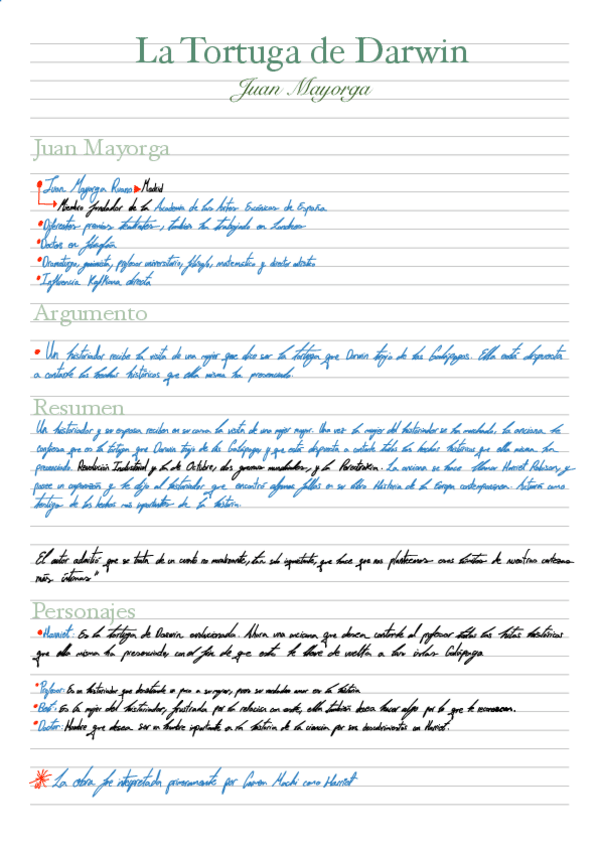 La Tortuga de Darwin
Juan Mayorga
Juan Mayorga
Juan Mayorga Ruano Madrid
Miembro fundador de la Academia de las Artes Escénicas de España.
Diferentes premios teatrales, también ha trabajado en Londres
Doctor en filosofía
Dramaturgo, guionista, profesor universitario, filósofo, matemático y director artístico
Influencia Kafkiana directa
Argumento
Un historiador recibe la visita de una mujer que dice ser la tortuga que Darwin trajo de las Galápagos. Ella está dispuesta
a contarle los hechos históricos que ella misma ha presenciado.
Resumen
Un historiador y su esposa reciben en su casa la visita de una mujer mayor. Una vez la mujer del historiador se ha marchado, la anciana le
confiesa que es la tortuga que Darwin trajo de las Galápagos y que está dispuesta a contarle todos los hechos históricos que ella misma ha
presenciado. Revolución Industrial y la de Octubre, dos guerras mundiales, y la Perestroika. La anciana se hace llamar Harriet Robinson, y
posee un caparazón y le dijo al historiador que encontró algunos fallos en su libro Historia de la Europa contemporánea.
tortuga de los hechos más importantes de la historia.
El autor admitió que se trata de un cuento no moralizante, tan solo que hace que nos planteemos esos límites de nuestras certezas
más íntimas"
Personajes
Harriet: Es la tortuga de Darwin evolucionada. Ahora una anciana que desea contarle al profesor todos los hitos históricos
que ella misma ha presenciado, con el fin de que este le lleve de vuelta a las islas Galápagos
Profesor: Es un historiador que poco a su mujer, pero su verdadero amor es la historia
Beti: Es la mujer del historiador, frustrada por la relación con este, ella también desea hacer algo por lo que le reconozcan.
Doctor: Hombre que desea ser un hombre importante en la historia de la ciencia por sus descubrimientos en Harriet.
La obra fue interpretada primeramente por Carmen Machi como Harriet